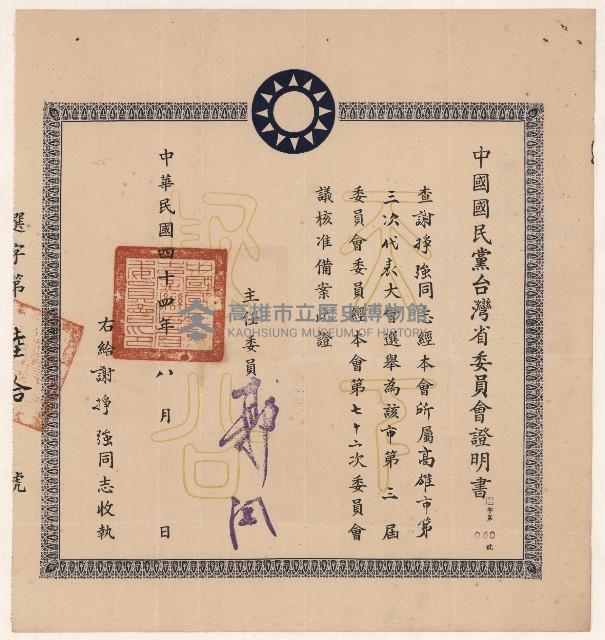 中國國民黨台灣省委員會證明書
選字第
060
號
查謝掙強同志經本會所屬高雄市第
三次代表大會選舉為該市第三屆
委員會委員經本會第七十六次委員會
議核准備案此證
主任委員
中華民國四十四年八月 日
右給謝掙強同志收執
選字第陸拾號
天下為公
高雄市立歷史博物館
KAOHSIUNG MUSEUM OF HISTORY